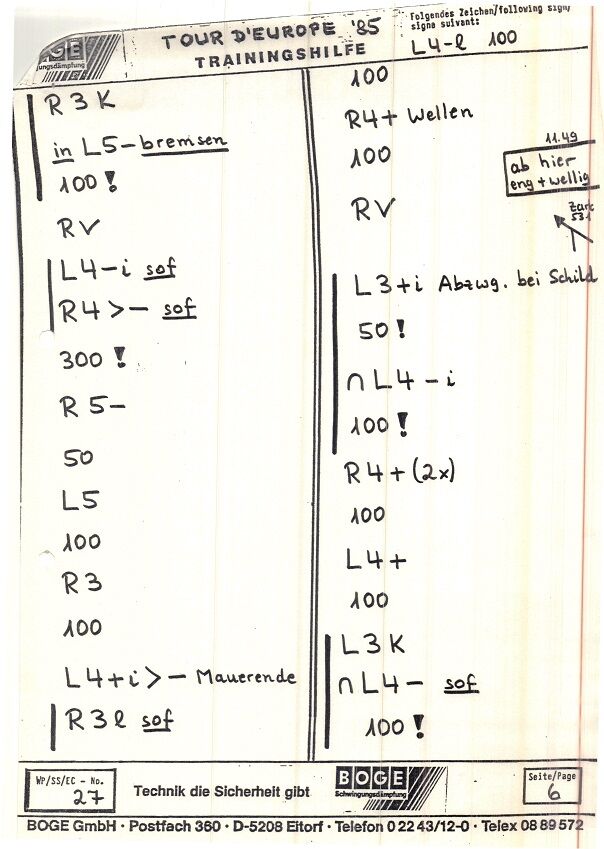 BOGE
ungsdämpfung
TOUR D'EUROPE '85
TRAININGSHILFE
Folgendes Zeichen/following sign/
signe suivant:
L4-l 100
R3K
in L5-bremsen
100!
RV
L4-i sof
R4>- sof
300!
R5-
50
L5
100
R3
100
L4+i>- Mauerende
R3l sof
100
R4+ Wellen
100
11.49
ab hier
eng+wellig
RV
531
L3+i Abzwg. bei Schild
50!
∩L4-i
100!
R4+(2x)
100
L4+
100
L3K
∩L4- sof
100!
WP/SS/EC - No.
27
Technik die Sicherheit gibt
BOGE
Schwingungsdämpfung
Seite/Page
6
BOGE GmbH · Postfach 360 · D-5208 Eitorf · Telefon 0 22 43/12-0 · Telex 08 89 572